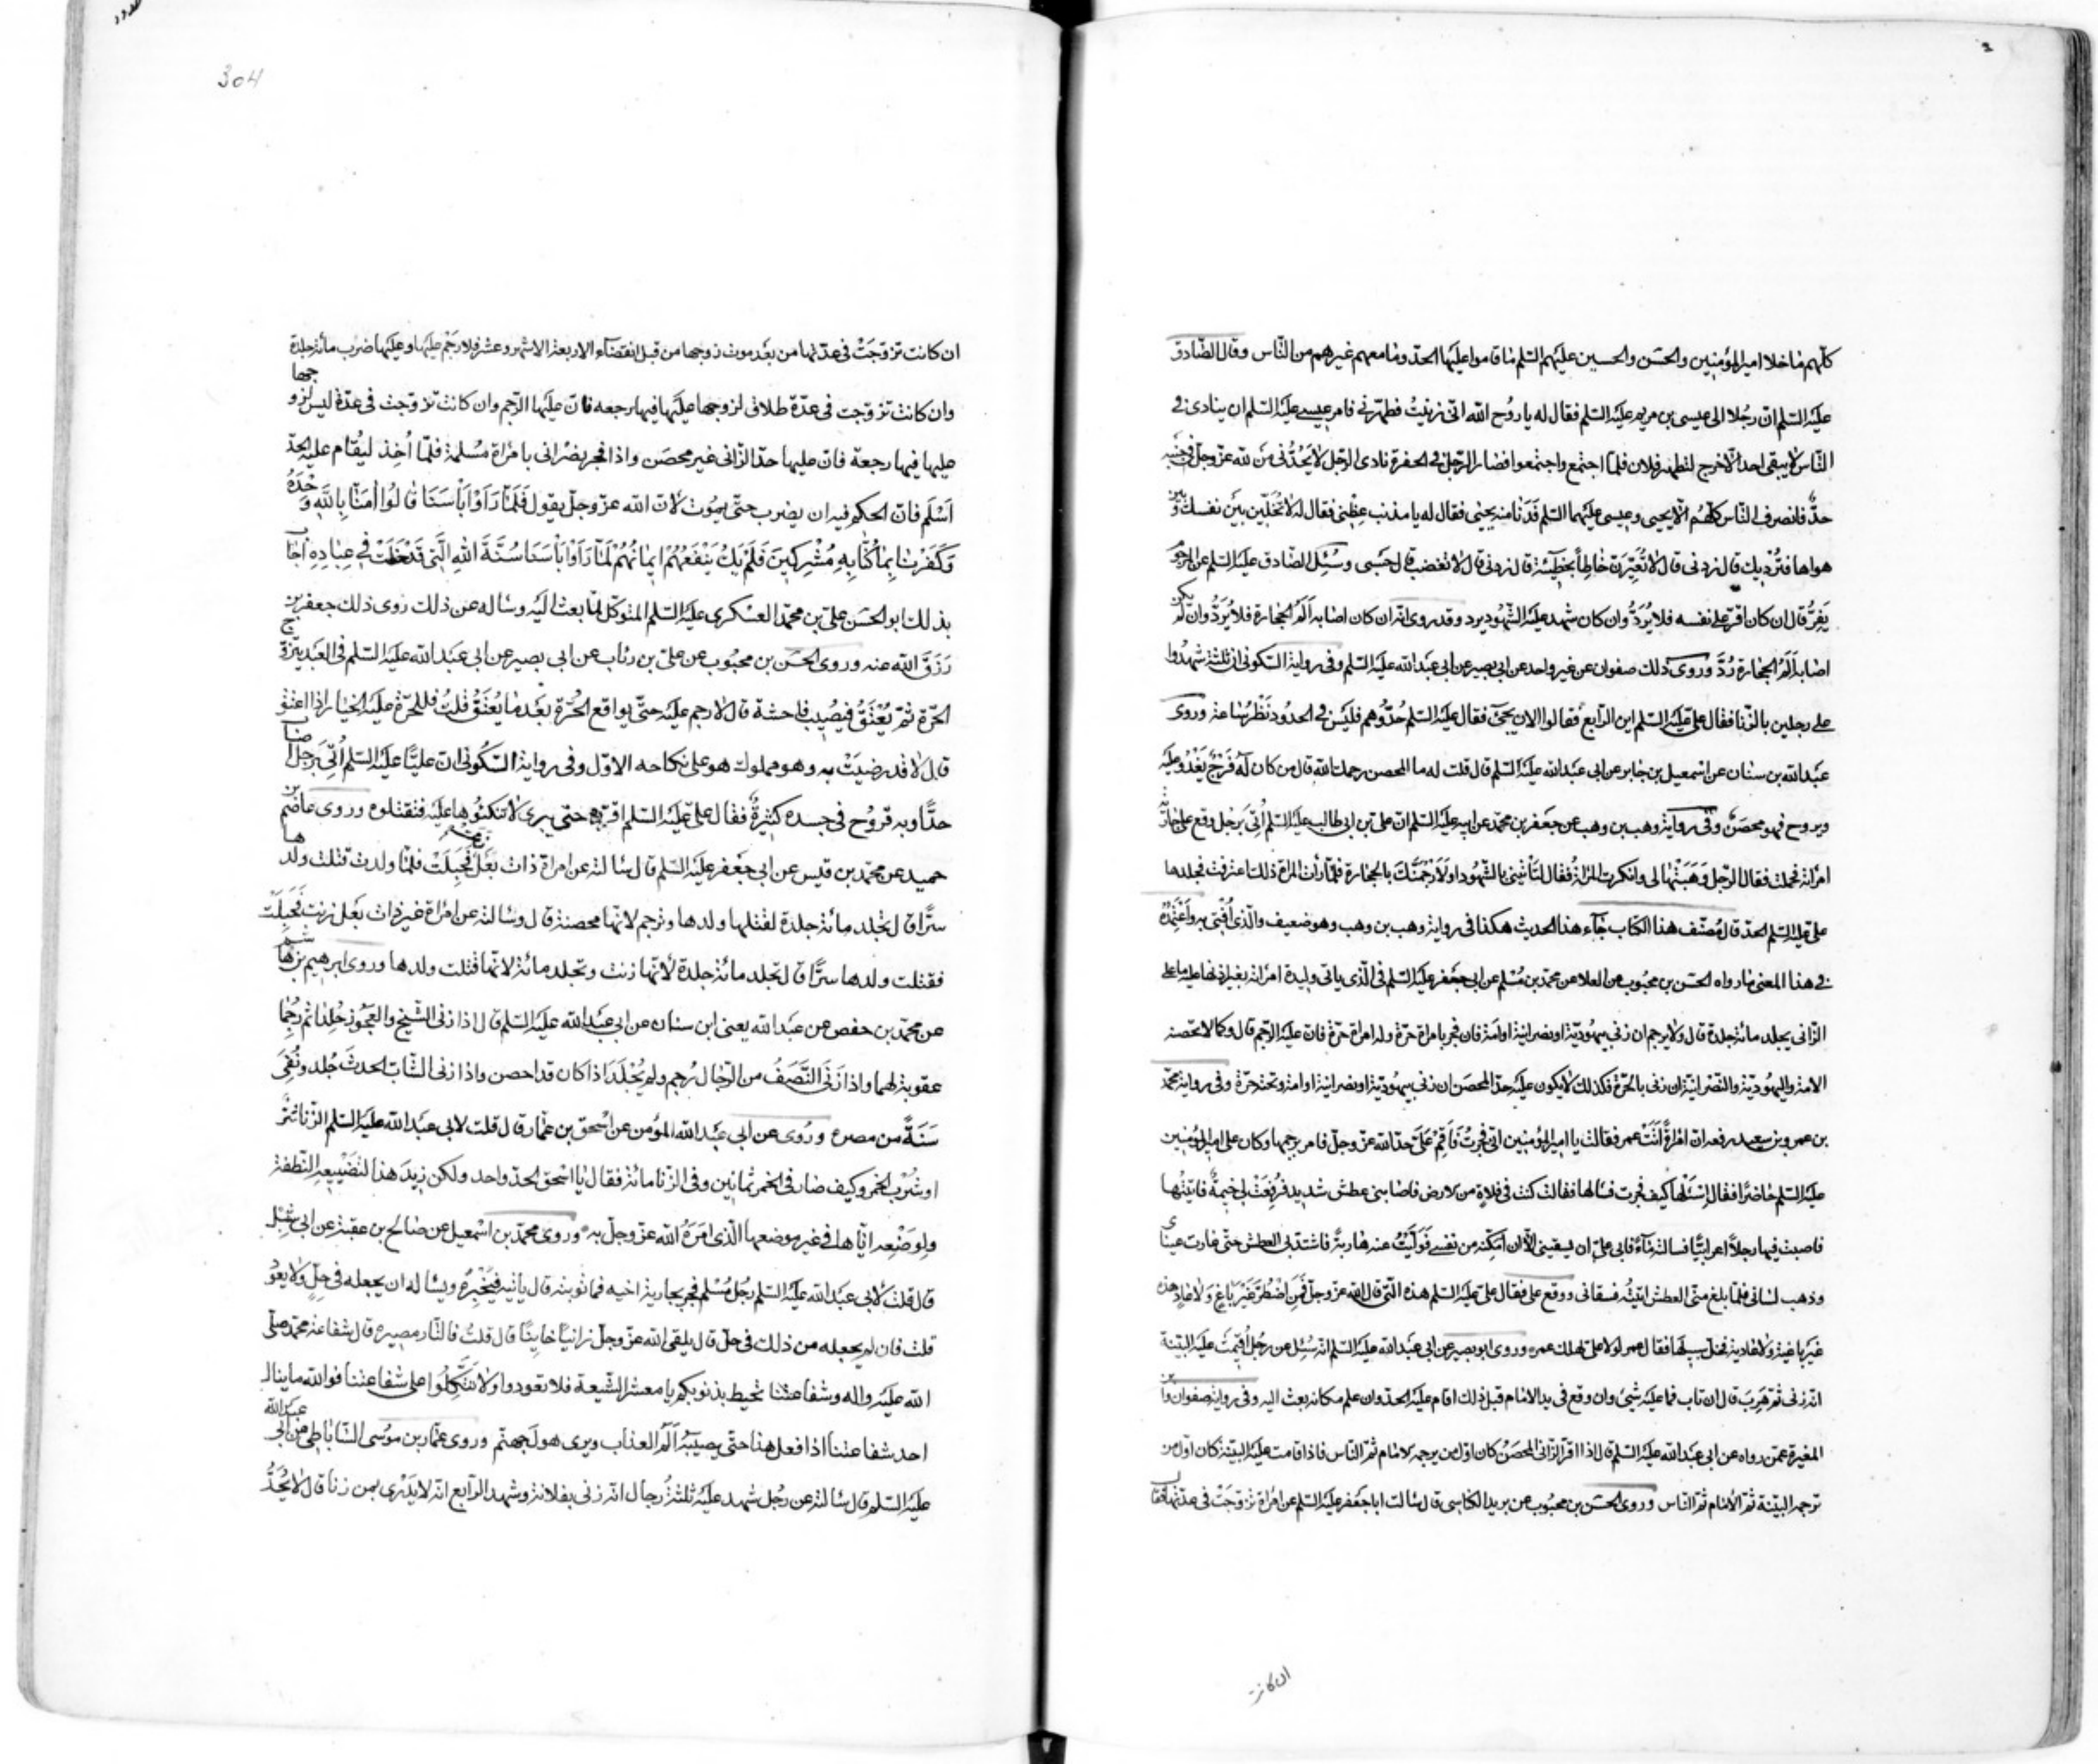 كلّهم ما خلا امير المؤمنين والحسن والحسين عليهم السّلم فاقاموا عليها الحدّ وما معهم غيرهم من النّاس وقال الصّادق
عليه السّلم انّ رجلا الى عيسى بن مريم عليه السّلم فقال له يا روح الله انّى زنيت فطهّرنى فامر عيسى عليه السّلم ان ينادى فى
النّاس لا يبقى احد الّا خرج لتطهير فلان فلمّا اجتمع واجتمعوا فصار الرّجل فى الحفرة نادى الرّجل لا يحدّنى من لله عزّ وجلّ فى جنبه
حدّ فانصرف النّاس كلّهم الّا يحيى وعيسى عليهما السّلم فدنا منه يحيى فقال له يا مذنب عظنى فقال له لا تخلّين بين نفسك وبين
هواها فتردّيك قال زدنى قال لا تعيّرنّ خاطئا بخطيئة قال زدنى قال لا تغضب قال حسبى وسئل الصّادق عليه السّلم عن المرجوم
يفرّ قال ان كان اقرّ على نفسه فلا يردّ وان كان شهد عليه الشّهود يرد وقد روى انّه ان كان اصابه الم الحجارة فلا يردّ وان لم يكن
اصابه الم الحجارة ردّ وروى ذلك صفوان عن غير واحد عن ابى بصير عن ابى عبد الله عليه السّلم وفى رواية السّكونى انّ ثلثة شهدوا
على رجلين بالزّنا فقال علىّ عليه السّلم اين الرّابع فقالوا الان يجىء فقال عليه السّلم حدّوهم فليس فى الحدود نظر ساعة وروى
عبد الله بن سنان عن اسمعيل بن جابر عن ابى عبد الله عليه السّلم قال قلت له ما المحصن رحمك الله قال من كان له فرج يغدو عليه
ويروح فهو محصن وفى رواية وهب بن وهب عن جعفر بن محمّد عن ابيه عليه السّلم انّ علىّ بن ابى طالب عليه السّلم اتى برجل وقع على جارية
امراته فحملت فقال الرّجل وهبتها لى وانكرت المراة فقال لتأتينى بالشّهود او لارجمنّك بالحجارة فلمّا رأت المراة ذلك اعترفت فجلدها
علىّ عليه السّلم الحدّ قال مصنّف هذا الكتاب جاء هذا الحديث هكذا فى رواية وهب بن وهب وهو ضعيف والّذى افتى به واعتمده
فى هذا المعنى ما رواه الحسن بن محبوب عن العلا عن محمد بن مسلم عن ابى جعفر عليه السّلم فى الّذى ياتى وليدة امراته بغير اذنها عليه ما على
الزّانى يجلد مائة جلدة قال ولا يرجم ان زنى بيهوديّة او نصرانيّة او امة فان فجر بامراة حرّة وله امراة حرّة فانّ عليه الرّجم قال وكما لا تحصنه
الامة واليهوديّة والنّصرانيّة ان زنى بالحرّة فكذلك لا يكون عليه حدّ المحصن ان زنى بيهوديّة او نصرانيّة او امة وتحته حرّة وفى رواية محمّد
بن عمرو بن سعيد رفعه ان امراة اتت عمر فقالت يا امير المؤمنين انّى فجرت فاقم علىّ حدّ الله عزّ وجلّ فامر برجمها وكان على امير المؤمنين
عليه السّلم حاضرا فقال اسئلها كيف فجرت فسالها فقالت كنت فى فلاة من الارض فاصابنى عطش شديد فرفعت لى خيمة فاتيتها
فاصبت فيها رجلا اعرابيّا فسالته ماء فابى علىّ ان يسقينى الّا ان امكّنه من نفسى فولّيت عنه هاربة فاشتدّ بى العطش حتّى غارت عيناى
وذهب لسانى فلمّا بلغ منّى العطش اتيته فسقانى ووقع على فقال علىّ عليه السّلم هذه الّتى قال الله عزّ وجلّ فمن اضطرّ غير باغ ولا عاد هذه
غير باغية ولا عادية فخلّ سبيلها فقال عمر لولا علىّ لهلك عمر وروى ابو بصير عن ابى عبد الله عليه السّلم انّه سئل عن رجل اقيمت عليه البيّنة
انّه زنى ثمّ هرب قال ان تاب فما عليه شىء وان وقع فى يد الامام قبل ذلك اقام عليه الحدّ وان علم مكانه بعث اليه وفى رواية صفوان وابن
المغيرة عمّن رواه عن ابى عبد الله عليه السّلم قال اذا اقرّ الزّانى المحصن كان اوّل من يرجمه الامام ثمّ النّاس فاذا قامت عليه البيّنة كان اوّل من
ترجمه البيّنة ثمّ الامام ثمّ النّاس وروى الحسن بن محبوب عن بريد الكناسى قال سالت ابا جعفر عليه السّلم عن امراة تزوّجت فى عدّتها فقال
ان كانت
304
ان كانت تزوّجت فى عدّتها من بعد موت زوجها من قبل انقضاء الاربعة الاشهر وعشر فلا رجم عليها وعليها ضرب مائة جلدة
وان كانت تزوّجت فى عدّة طلاق لزوجها عليها فيها رجعه فانّ عليها الرّجم وان كانت تزوّجت فى عدّة ليس لزوجها
عليها فيها رجعة فانّ عليها حدّ الزّانى غير محصن واذا فجر نصرانى بامراة مسلمة فلمّا اُخذ ليقام عليه الحدّ
اسلم فانّ الحكم فيه ان يضرب حتّى يموت لانّ الله عزّ وجلّ يقول فَلَمّا رَاَوْا بَأْسَنَا قالُوا امَنّا بِاللّهِ وَحْدَهُ
وَكَفَرْنا بِما كُنّا بِهِ مُشْرِكينَ فَلَمْ يَكُ يَنْفَعُهُمْ ايمانُهُمْ لَمّا رَاَوْا بَأْسَنا سُنَّةَ اللهِ الَّتى قَدْ خَلَتْ فى عِبادِهِ اجاب
بذلك ابو الحسن علىّ بن محمّد العسكرى عليه السّلم المتوكّل لمّا بعث اليه وساله عن ذلك روى ذلك جعفر بن
رزق الله عنه وروى الحسن بن محبوب عن علىّ بن رئاب عن ابى بصير عن ابى عبد الله عليه السّلم فى العبد يتزوّج
الحرّة ثمّ يعتق فيصيب فاحشة قال لا رجم عليه حتّى يواقع الحرّة بعد ما يعتق قلت فللحرّة عليه الخيار اذا اعتق
قال لا قد رضيت به وهو مملوك هو على نكاحه الاوّل وفى رواية السّكونى انّ عليّا عليه السّلم اُتى برجل اصاب
حدّا وبه قروح فى جسده كثيرة فقال علىّ عليه السّلم اقرّوه حتى يبرى لا تنكئوها عليه فتقتلوه وروى عاصم بن
حميد عن محمد بن قيس عن ابى جعفر عليه السّلم قال سالته عن امراة ذات بعل فحبلت فلمّا ولدت قتلت ولدها
سرّا قال تجلد مائة جلدة لقتلها ولدها وترجم لانّها محصنة قال وسالته عن امراة غير ذات بعل زنت فحبلت
فقتلت ولدها سرّا قال تجلد مائة جلدة لانّها زنت وتجلد مائة لانّها قتلت ولدها وروى ابرهيم بن هاشم
عن محمّد بن حفص عن عبد الله يعنى ابن سنان عن ابى عبد الله عليه السّلم قال اذا زنى الشّيخ والعجوز جلدا ثم رجما
عقوبة لهما واذا زنى النّصف من الرّجال رجم ولم يجلد اذا كان قد احصن واذا زنى الشّابّ الحدث جُلد ونُفى
سنة من مصره وروى عن ابى عبد الله المؤمن عن اسحق بن عمّار قال قلت لابى عبد الله عليه السّلم الزّنا اشرّ
او شرب الخمر وكيف صار فى الخمر ثمانين وفى الزّنا مائة فقال يا اسحق الحدّ واحد ولكن زيد هذا لتضييعه النّطفة
ولوضعه ايّاها فى غير موضعها الّذى امره الله عزّ وجلّ به وروى محمّد بن اسمعيل عن صالح بن عقبة عن ابى شبل
قال قلت لابى عبد الله عليه السّلم رجل مسلم فجر بجارية اخيه فما توبته قال يأتيه فيخبره ويساله ان يجعله فى حلّ ولا يعود
قلت فان لم يجعله من ذلك فى حلّ قال يلقى الله عزّ وجلّ زانيا خاينا قال قلت فالنّار مصيره قال شفاعة محمّد صلى
الله عليه واله وشفاعتنا تحيط بذنوبكم يا معشر الشّيعة فلا تعودوا ولا تتّكلوا على شفاعتنا فو الله ما ينال
احد شفاعتنا اذا فعل هذا حتّى يصيبه الم العذاب ويرى هول جهنّم وروى عمّار بن موسى السّاباطى عن ابى عبد الله
عليه السّلم قال سالته عن رجل شهد عليه ثلثة رجال انّه زنى بفلانة وشهد الرّابع انّه لا يدرى بمن زنا قال لا يحدّ